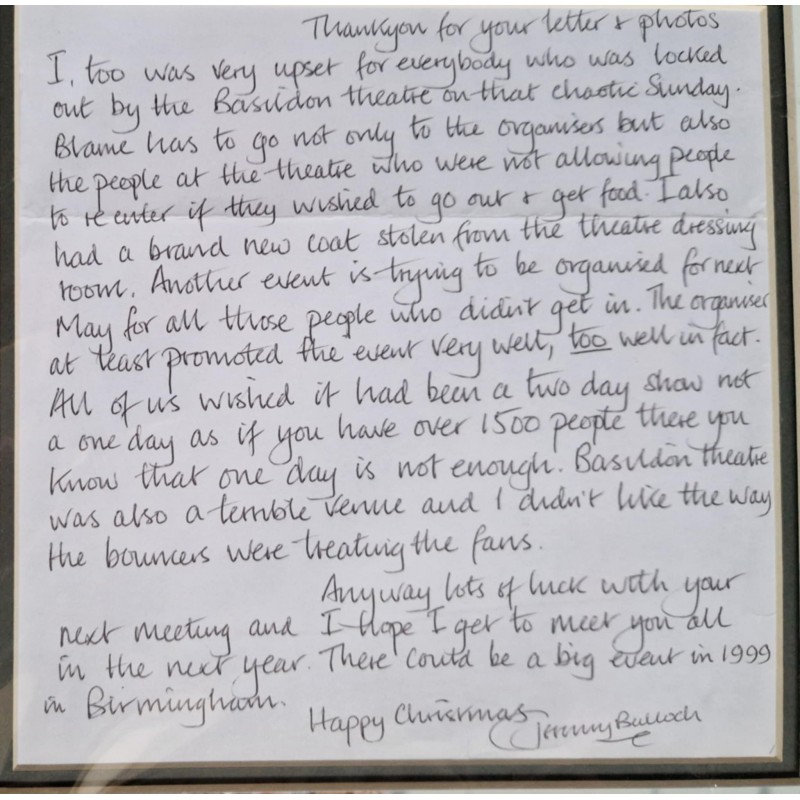 Thankyou for your letter & photos
I, too was very upset for everybody who was locked
out by the Basildon theatre on that chaotic Sunday.
Blame has to go not only to the organisers but also
the people at the theatre who were not allowing people
to re enter if they wished to go out & get food. I also
had a brand new coat stolen from the theatre dressing
room. Another event is trying to be organised for next
May for all those people who didn't get in. The organiser
at least promoted the event very well, too well in fact.
All of us wished it had been a two day show not
a one day as if you have over 1500 people there you
know that one day is not enough. Basildon theatre
was also a terrible venue and I didn't like the way
the bouncers were treating the fans.
Anyway lots of luck with your
next meeting and I hope I get to meet you all
in the next year. There could be a big event in 1999
in Birmingham.
Happy Chrismas Jeremy Bulloch